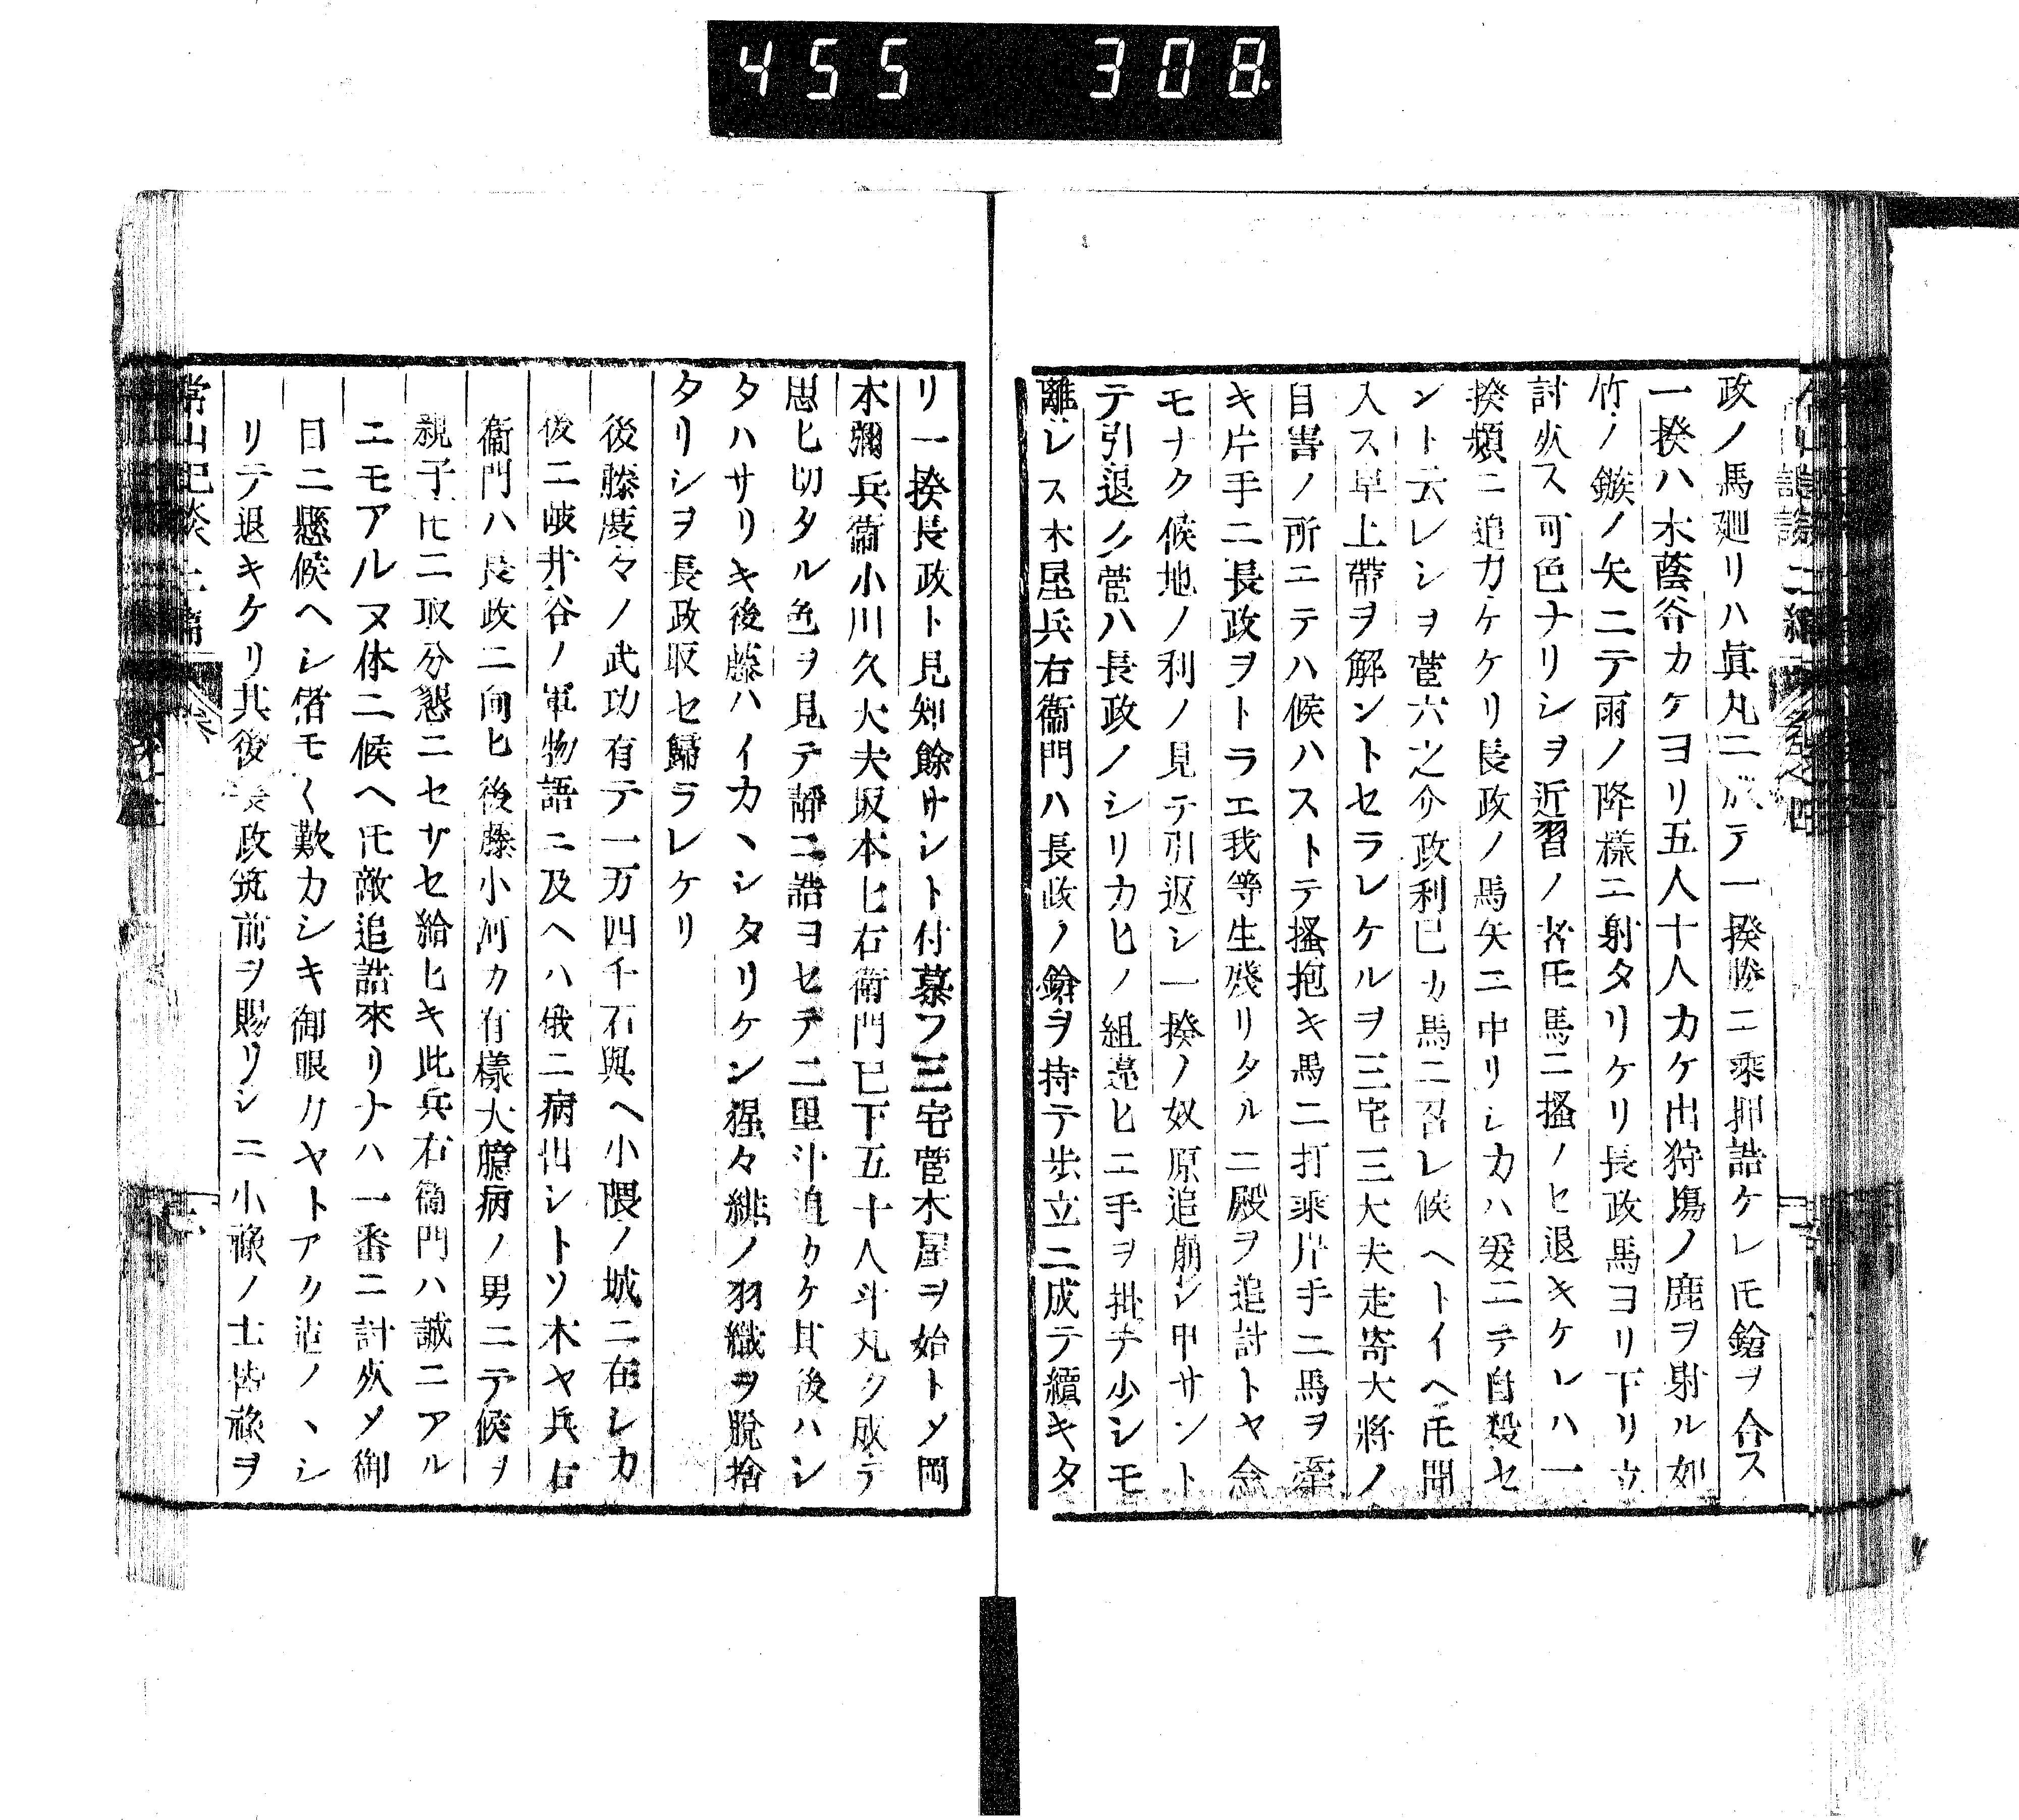 455 308
政ノ馬廻リハ眞丸ニ成テ一揆勝ニ乘押詰ケレ𪜈鎗ヲ合ス
一揆ハ木蔭谷カケヨリ五人十人カケ出狩塲ノ鹿ヲ射ル如
竹ノ鏃ノ矢ニテ雨ノ降樣ニ射タリケリ長政馬ヨリ下リ立
討死ス可色ナリシヲ近習ノ者𪜈馬ニ搔ノセ退キケレハ一
揆頻ニ追カケケリ長政ノ馬矢ニ中リシカハ爰ニテ自殺セ
ント云レシヲ菅六之介政利己カ馬ニ召レ候ヘトイヘ𪜈聞
入ス早上帶ヲ解ントセラレケルヲ三宅三大夫走寄大將ノ
自害ノ所ニテハ候ハストテ搔抱キ馬ニ打乘片手ニ馬ヲ牽
キ片手ニ長政ヲトラエ我等生殘リタルニ殿ヲ追討トヤ念
モナク候地ノ利ノ見テ引返シ一揆ノ奴原追崩シ申サント
テ引退ク菅ハ長政ノシリカヒノ組違ヒニ手ヲ掛テ少シモ
離レス木屋兵右衞門ハ長政ノ鎗ヲ持テ步立ニ成テ續キタ
リ一揆長政ト見知餘サシト付慕フ三宅菅木屋ヲ始トメ岡
本彌兵衞小川久大夫坂本七右衞門已下五十人斗丸ク成テ
思ヒ切タル色ヲ見テ靜ニ詰ヨセテ二里斗追カケ其後ハシ
タハサリキ後藤ハイカヽシタリケン猩々緋ノ羽織ヲ脫捨
タリシヲ長政取セ歸ラレケリ
後藤度々ノ武功有テ一万四千石與ヘ小隈ノ城ニ在レカ
後ニ岐井谷ノ軍物語ニ及ヘハ俄ニ病出シトソ木ヤ兵右
衞門ハ長政ニ向ヒ後藤小河カ有樣大臆病ノ男ニテ候ヲ
親子𪜈ニ取分懇ニセサセ給ヒキ此兵右衞門ハ誠ニアル
ニモアルヌ体ニ候ヘ𪜈敵追詰來リナハ一番ニ討死メ御
目ニ懸候ヘシ偖モ〱歎カシキ御眼カヤトアク迄ノヽシ
リテ退キケリ其後長政筑前ヲ賜リシニ小祿ノ士皆祿ヲ
常山紀談二編